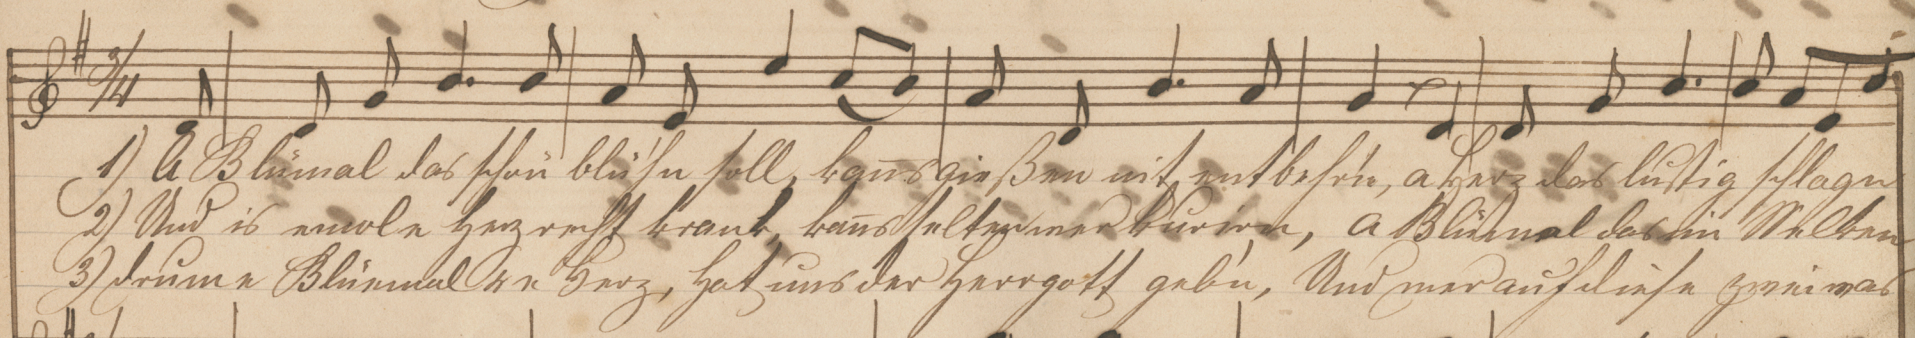 3/4
1) A Blümal das schön blüh'n soll, kanns gießen nit entbehr'n, a Herz das lustig schlagn
2) Und is emole Herz recht krank, kanns selten wer kurirn, A Blümal das im Welken
3) drum e Blüemal Herz, hat uns der Herrgott geb'n, Und wer auf diese zwei was